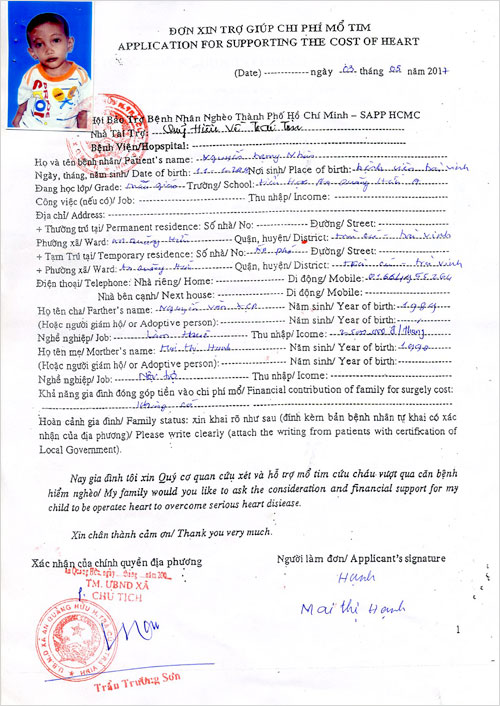 ĐƠN XIN TRỢ GIÚP CHI PHÍ MỔ TIM
APPLICATION FOR SUPPORTING THE COST OF HEART
(Date) ------------- ngày 03 tháng 05 năm 2017
Hội Bảo Trợ Bệnh Nhân Nghèo Thành Phố Hồ Chí Minh – SAPP HCMC
Nhà Tài Trợ: Quỹ Hiểu Về Trái Tim
Bệnh Viện/Hopspital:
Họ và tên bệnh nhân/ Patient's name: Nguyễn
Ngày, tháng, năm sinh/ Date of birth: Nơi sinh/ Place of birth: bệnh viện trà vinh
Đang học lớp/ Grade: mẫu giáo Trường/ School:
Công việc (nếu có)/ Job: Thu nhập/ Income:
Địa chỉ/ Address:
+ Thường trú tại/ Permanent residence: Số nhà/ No: Đường/ Street:
Phường xã/ Ward: an quảng hữu Quận, huyện/ District: trà cú - trà vinh
+ Tạm Trú tại/ Temporary residence: Số nhà/ No: Đường/ Street:
+ Phường xã/ Ward: an quảng hữu Quận, huyện/ District: trà cú - trà vinh
Điện thoại/ Telephone: Nhà riêng/ Home: Di động/ Mobile:
Nhà bên cạnh/ Next house: Di động/ Mobile:
Họ tên cha/ Farther's name: Nguyễn Văn Năm sinh/ Year of birth: 1984
(Hoặc người giám hộ/ or Adoptive person): Năm sinh/ Year of birth:
Nghề nghiệp/ Job: làm thuê Thu nhập/ Icome: đ/tháng
Họ tên mẹ/ Morther's name: Mai Thị Hạnh Năm sinh/ Year of birth: 1990
(Hoặc người giám hộ/ or Adoptive person): Năm sinh/ Year of birth:
Nghề nghiệp/ Job: Nội trợ Thu nhập/ Icome:
Khả năng gia đình đóng góp tiền vào chi phí mổ/ Financial contribution of family for surgely cost:
không có
Hoàn cảnh gia đình/ Family status: xin khai rõ như sau (đính kèm bản bệnh nhân tự khai có xác
nhận của địa phương)/ Please write clearly (attach the writing from patients with certification of
Local Government).
Nay gia đình tôi xin Quý cơ quan cứu xét và hỗ trợ mổ tim cứu cháu vượt qua căn bệnh
hiểm nghèo/ My family would you like to ask the consideration and financial support for my
child to be operatec heart to overcome serious heart disiease.
Xin chân thành cảm ơn/ Thank you very much.
Xác nhận của chính quyền địa phương
Người làm đơn/ Applicant's signature
An Quảng Hữu, ngày tháng năm 200
TM. UBND XÃ
CHỦ TỊCH
Hạnh
Mai thị Hạnh
U.B.N.D XÃ AN QUẢNG HỮU H. TRÀ CÚ T. TRÀ VINH
Trầm Trường Sơn
1